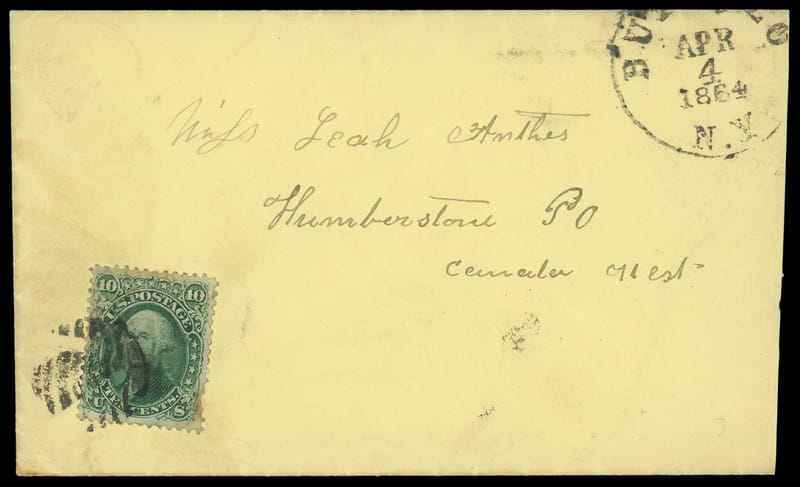 BUFFALO
APR
4
1864
N.Y.
Miss Leah Anthes
Humberstone PO
Canada West
10 10
U.S. POSTAGE
TEN CENTS.
U S